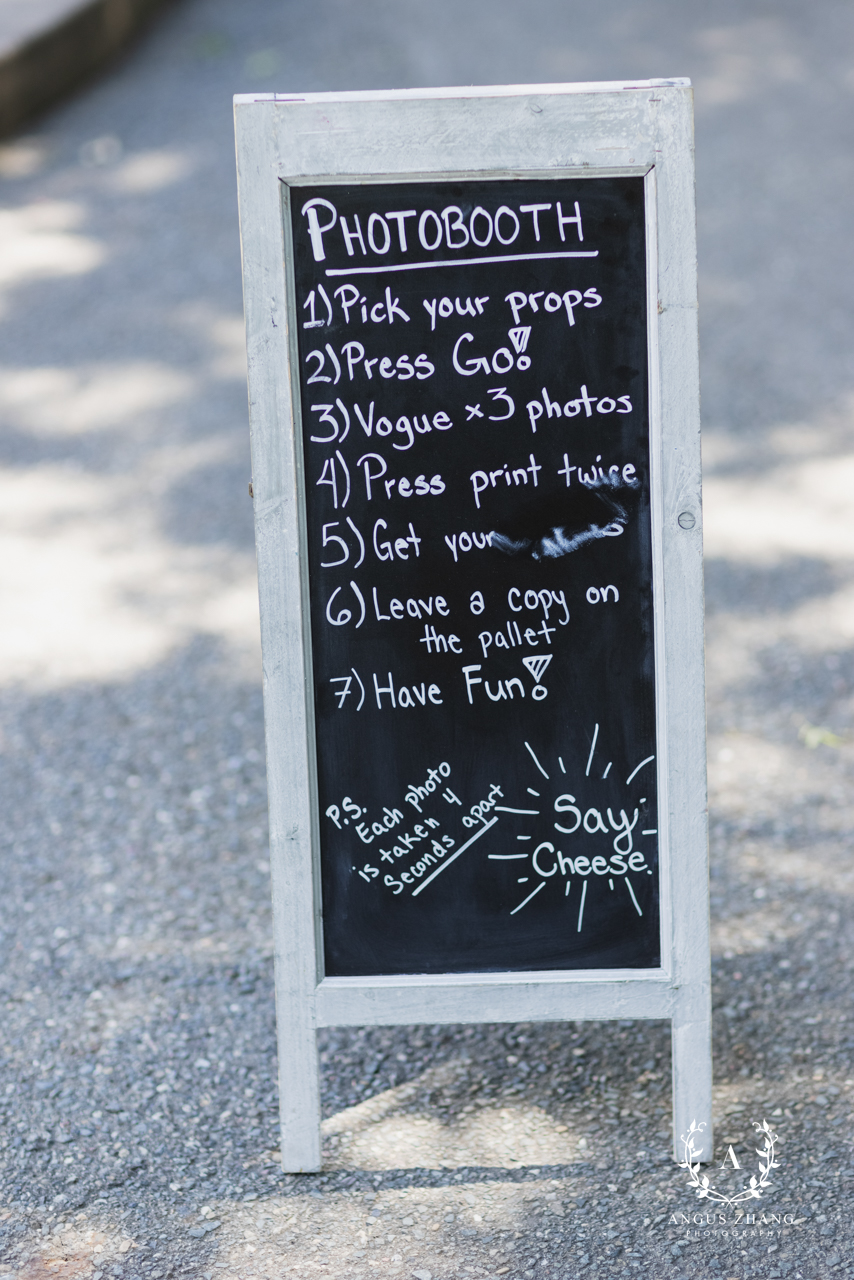 PHOTOBOOTH
1) Pick your props
2) Press Go!
3) Vogue x3 photos
4) Press print twice
5) Get your
6) Leave a copy on
the pallet
7) Have Fun!
P.S.
Each photo
is taken 4
Seconds apart
Say
Cheese.
A
ANGUS ZHANG
PHOTOGRAPHY